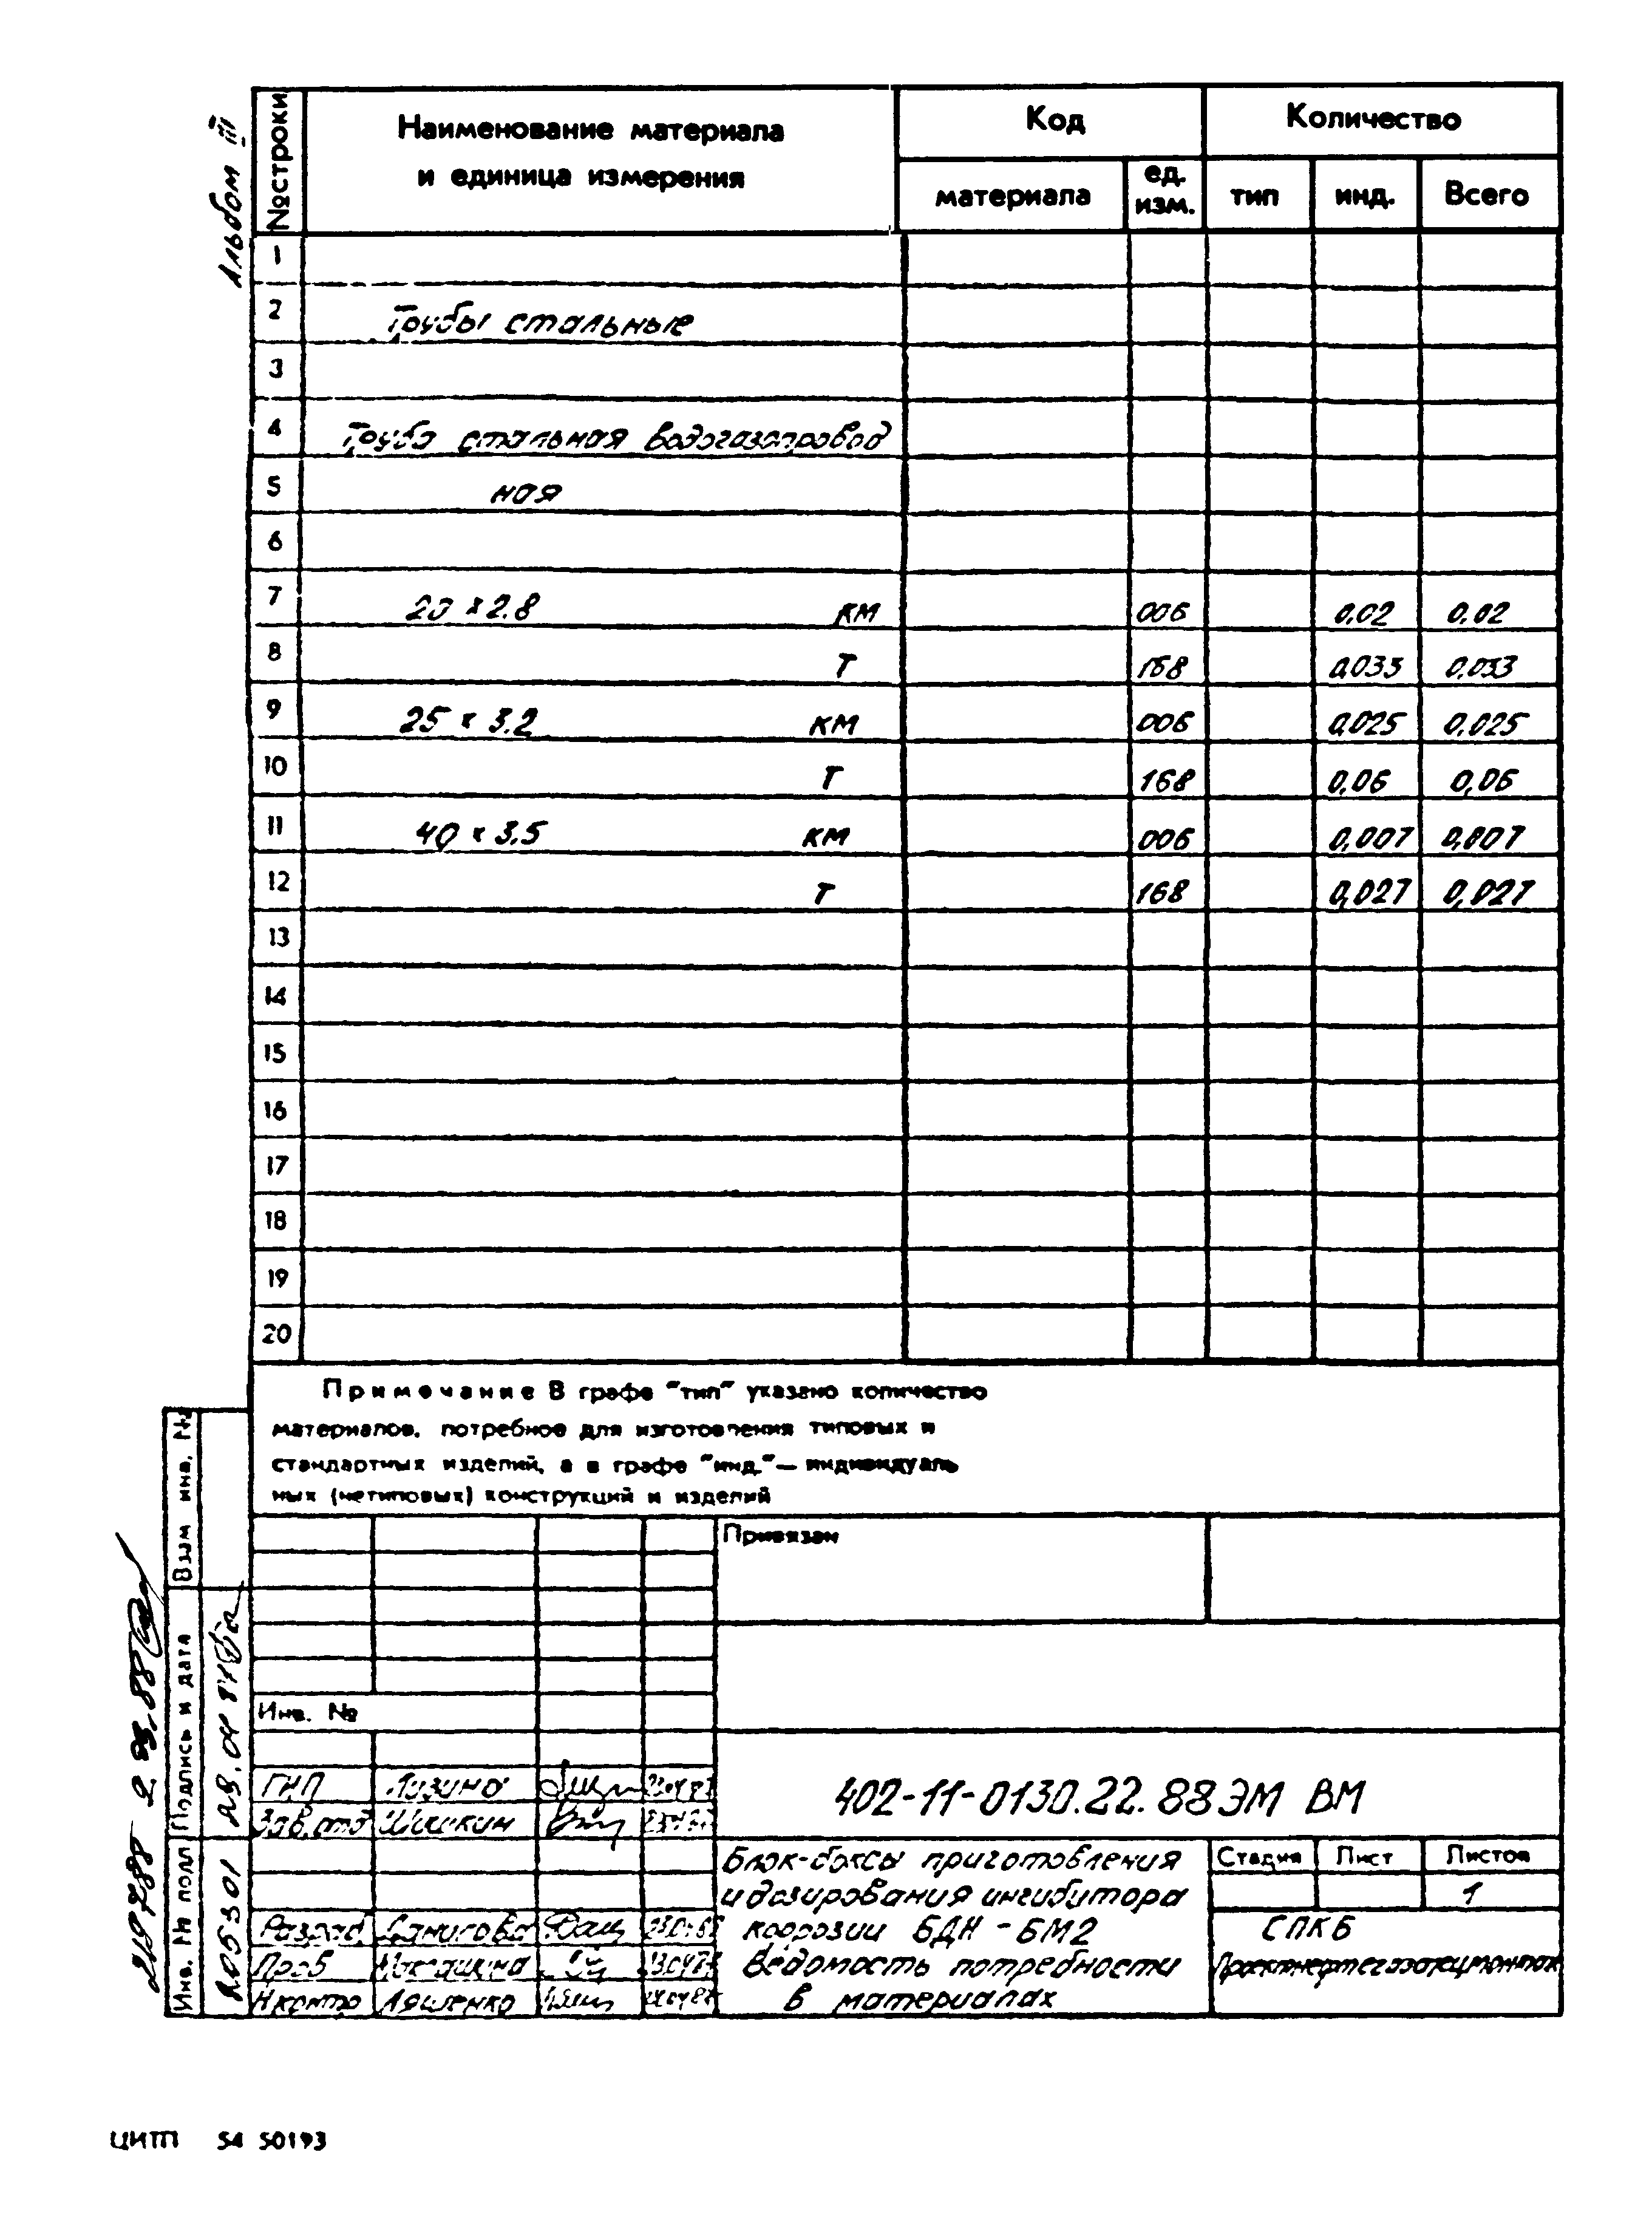 Альбом III
№ строки
Наименование материала
и единица измерения
Код
Количество
материала
ед.
изм.
тип
инд.
Всего
1
2 Трубы стальные
3
4 Труба стальная водогазопровод
5 ная
6
7 20 × 2.8 км 006 0,02 0,02
8 Т 168 0,033 0,033
9 25 × 3.2 км 006 0,025 0,025
10 Т 168 0,06 0,06
11 40 × 3.5 км 006 0,007 0,007
12 Т 168 0,027 0,027
13
14
15
16
17
18
19
20
Примечание В графе "тип" указано количество
материалов, потребное для изготовления типовых и
стандартных изделий, а в графе "инд."— индивидуаль
ных (нетиповых) конструкций и изделий
Привязан
Инв. №
ГИП
Зав. отд Шишкин
402-11-0130.22.88 ЭМ ВМ
Блок-боксы приготовления
и дозирования ингибитора
коррозии БДН - БМ2
Ведомость потребности
в материалах
Стадия Лист Листов
1
СПКБ
Разраб
Пров
Н контр Ляшенко
Взам инв. №
Подпись и дата
Инв. № подл
ЦИТП 54 50193